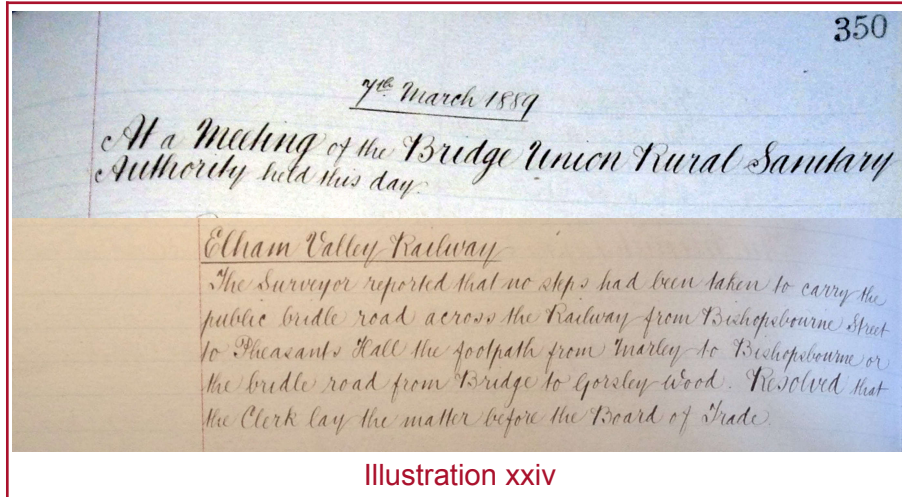 350
7th March 1889
At a Meeting of the Bridge Union Rural Sanitary
Authority held this day.
Elham Valley Railway
The Surveyor reported that no steps had been taken to carry the
public bridle road across the Railway from Bishopsbourne Street
to Pheasants Hall the footpath from Marley to Bishopsbourne or
the bridle road from Bridge to Gorsley Wood. Resolved that
the Clerk lay the matter before the Board of Trade.
Illustration xxiv